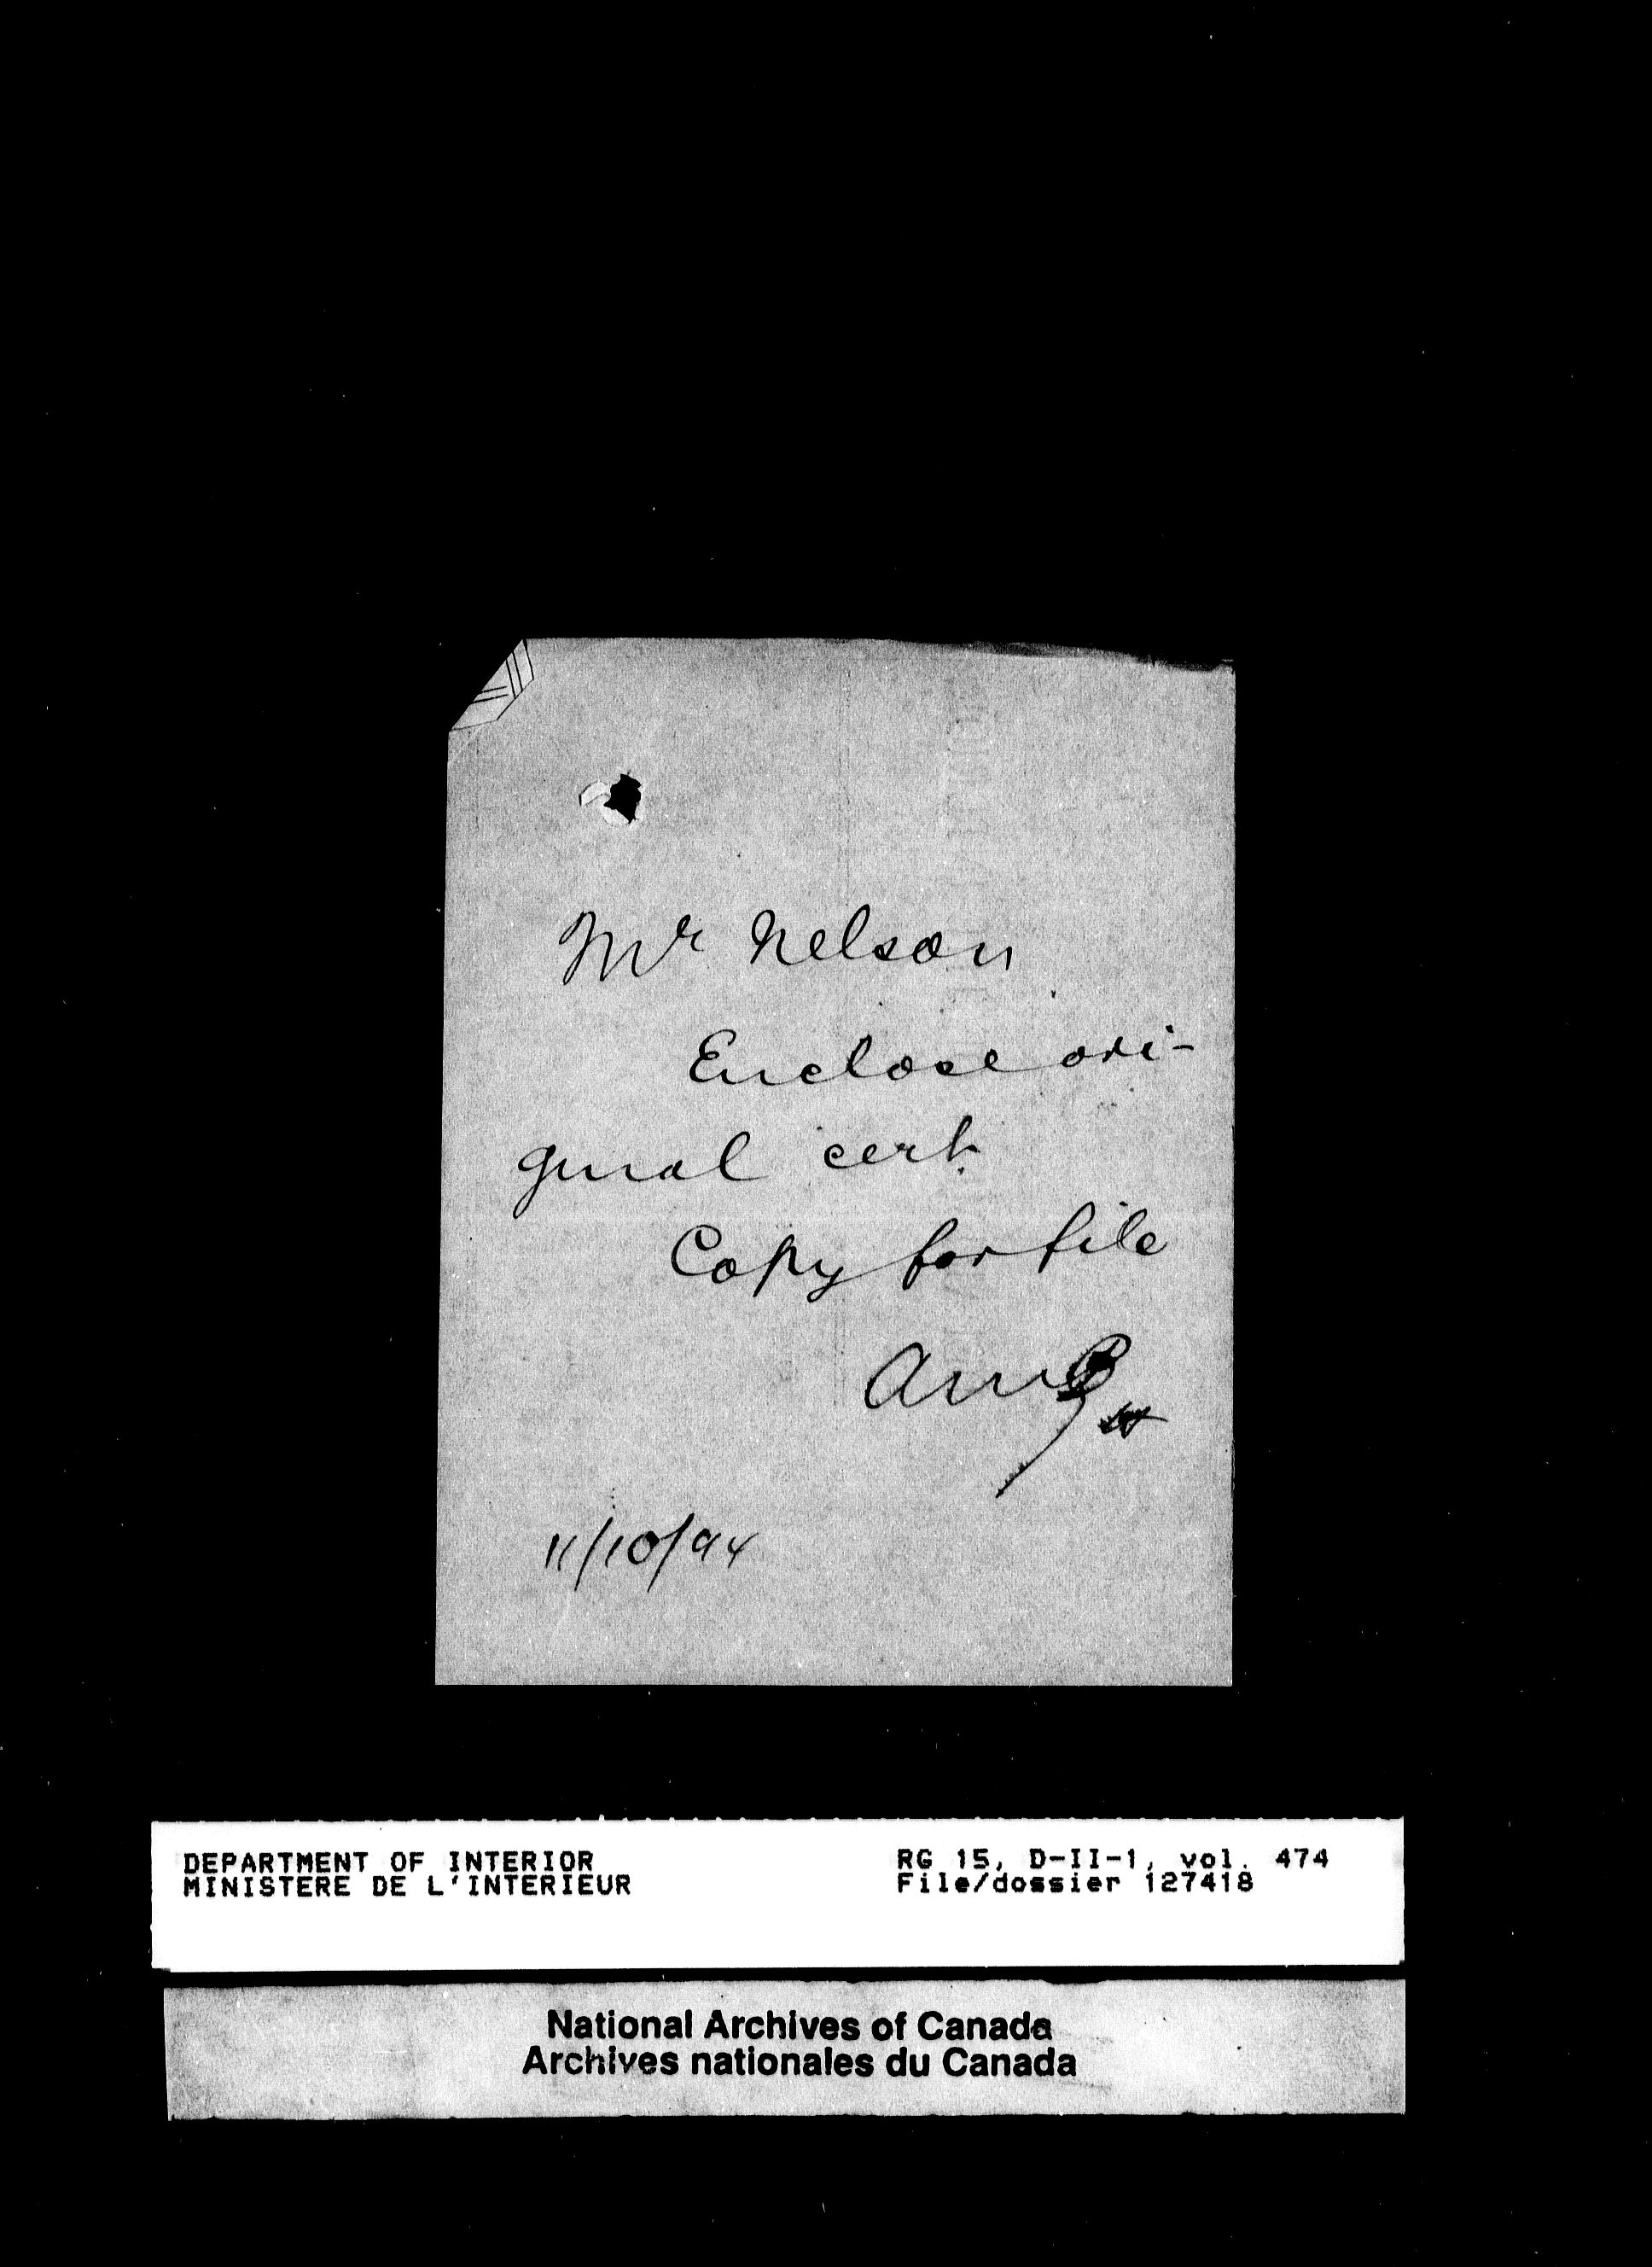 Mr Nelson
Enclose ori-
ginal cert.
Copy for file
11/10/94
DEPARTMENT OF INTERIOR
MINISTERE DE L'INTERIEUR
RG 15, D-II-1, vol. 474
File/dossier 127418
National Archives of Canada
Archives nationales du Canada